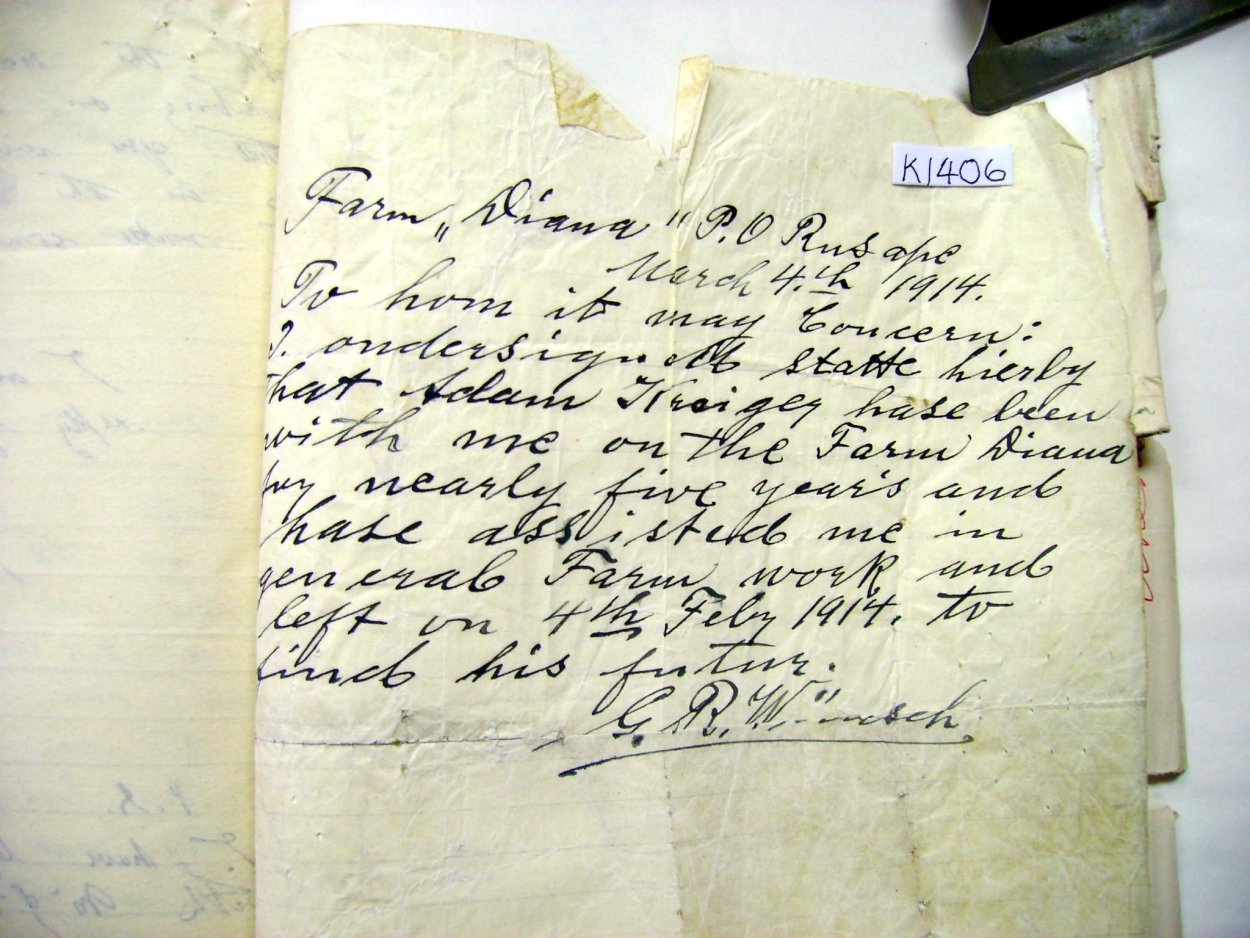 K1406
Farm „Diana" P.O Rusape
March 4.th 1914.
To hom it may Concern:
I. ondersigned statte hierby
that Adam Kreiger hase been
with me on the Farm Diana
for nearly five years and
hase assisted me in
general Farm work and
left on 4th Feby 1914. to
find his futur.
G. R. Wünsch